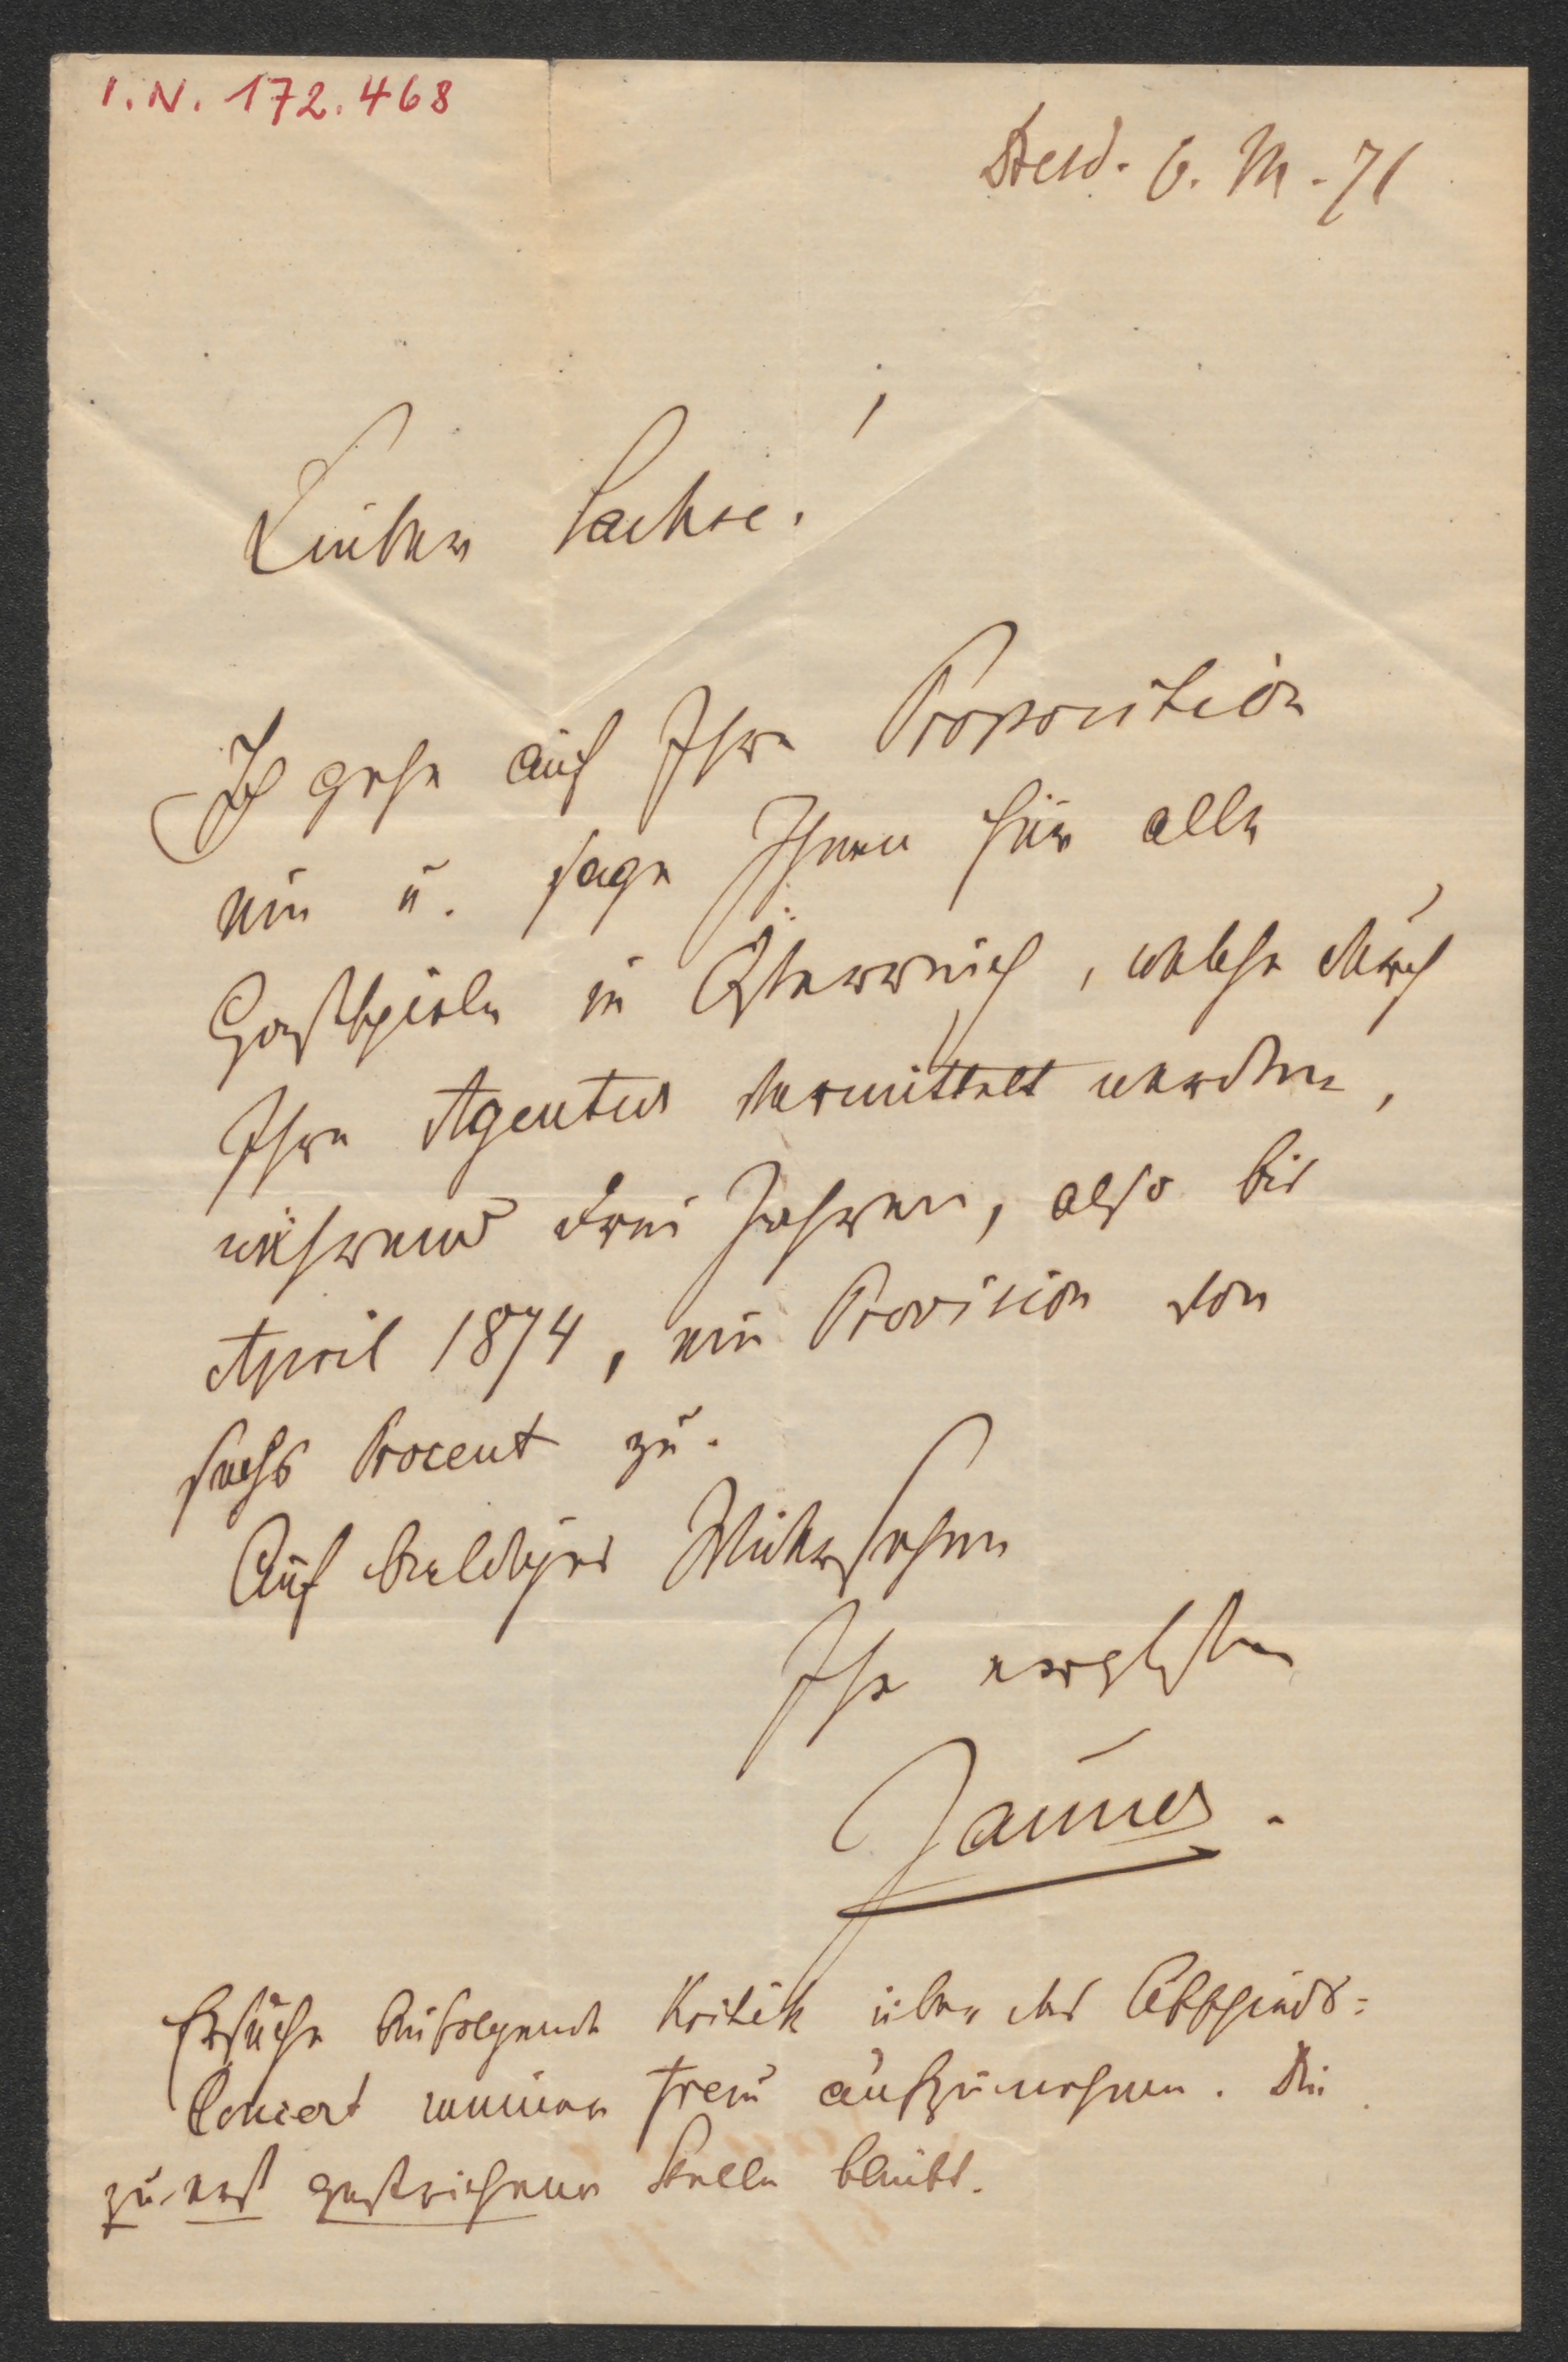 I.N. 172.468
Dresd. 6. M. 71
Lieber Sachse!
Ich gehe auf Ihre Proposition
ein u. sage Ihnen für alle
Gastspiele in Österreich, welche durch
Ihre Agentur vermittelt werden,
während drei Jahren, also bis
April 1874, ein Provision von
sechs Procent zu.
Auf baldiges Wiedersehen
Ihr ergebster
Jauner.
Ersuche beifolgende Kritik über das Abschieds=
Concert meiner Frau aufzunehmen. Die
zu-erst gestrichene Stelle bleibt.